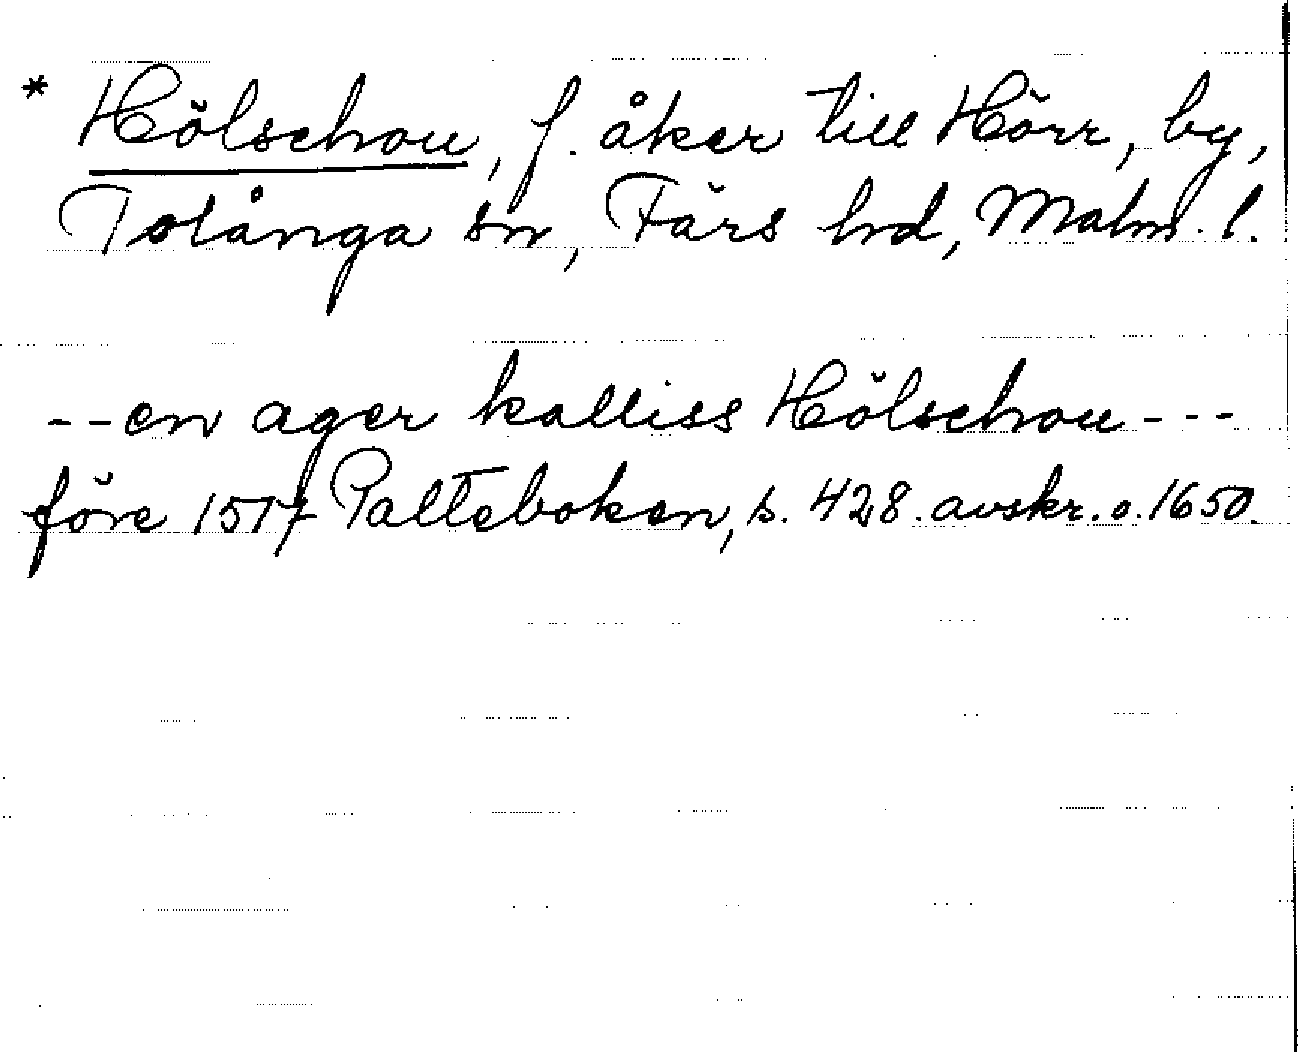 * Hölschou, f. åker till Hörr, by,
Tolånga sn, Färs hd, Malm. l.
--en ager kalliss Hölschou---
före 1517 Palteboken, s. 428. avskr. o. 1650.